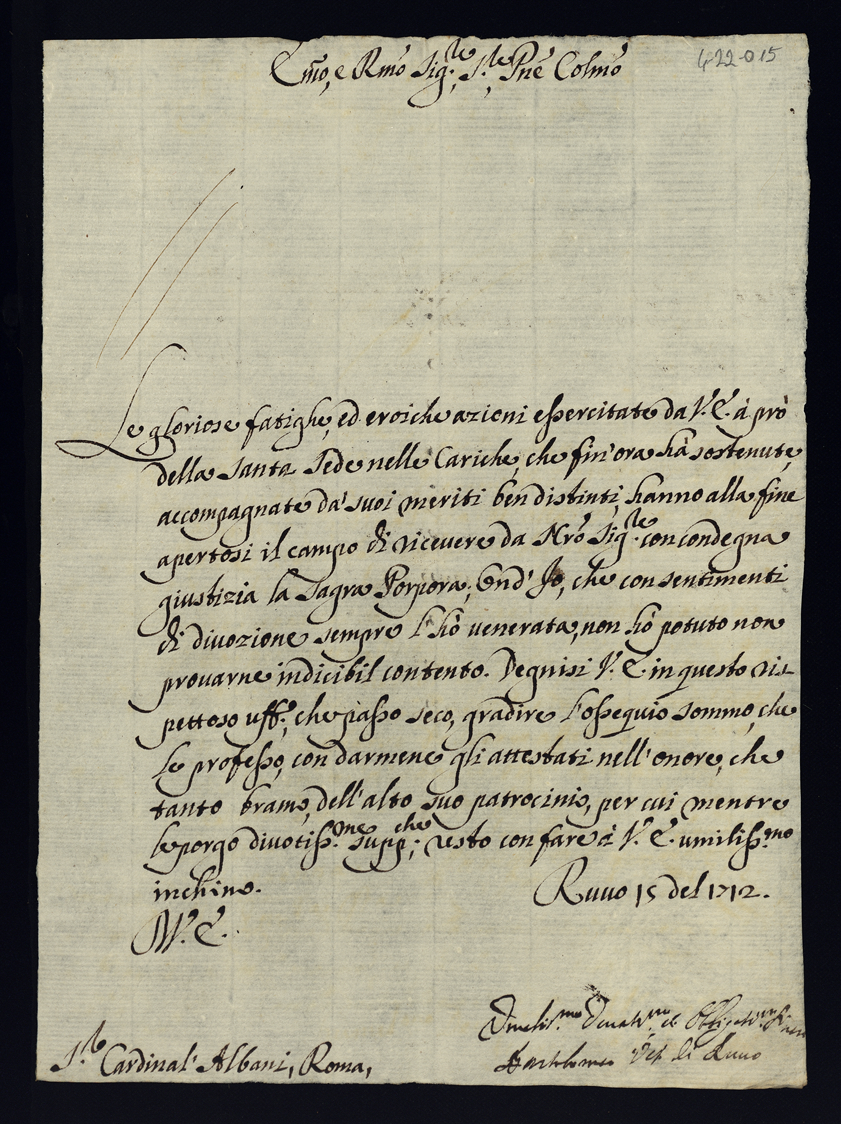 Em̃o, e Rm̃o Sig.re, S.re Pñe Colmo
422-015
Le gloriose fatighe, ed eroiche azioni essercitate da V. E. à prò
della Santa Sede nelle Cariche, che fin'ora hà sostenute,
accompagnate da' suoi meriti ben distinti, hanno alla fine
apertosi il campo di ricevere da Nr̃o Sig.re con condegna
giustizia la Sagra Porpora; Ond' Io, che con sentimenti
di divozione sempre l'hò venerata, non hò potuto non
provarne indicibil contento. Degnisi V. E. in questo ris-
pettoso uff.o, che passo seco, gradire l'ossequio sommo, che
le professo, con darmene gli attestati nell'onore, che
tanto bramo, dell'alto suo patrocinio, per cui mentre
le porgo divotiss.me supp.che, resto con fare à V. E. umiliss.mo
inchino.
Ruvo 15 del 1712.
V. E.
Umiliss.mo Devotis.mo et Obligatis.mo
Bartolomeo Ves. di Ruvo
S.re Cardinal' Albani, Roma,